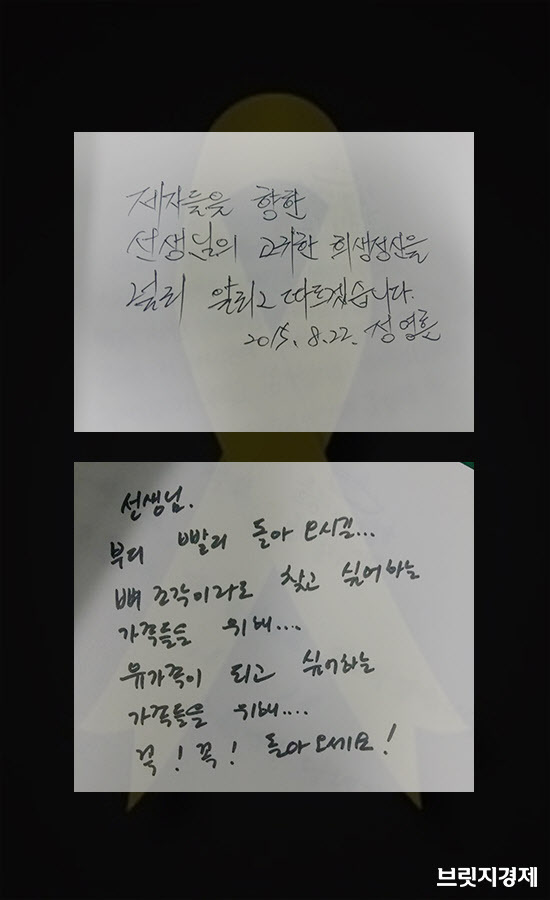 제자들을 향한
선생님의 고귀한 희생정신을
널리 알리고 따르겠습니다.
2015. 8. 22. 성영훈
선생님.
부디 빨리 돌아 오시길...
뼈 조각이라도 찾고 싶어하는
가족들을 위해....
유가족이 되고 싶어하는
가족들을 위해....
꼭! 꼭! 돌아오세요!
브릿지경제